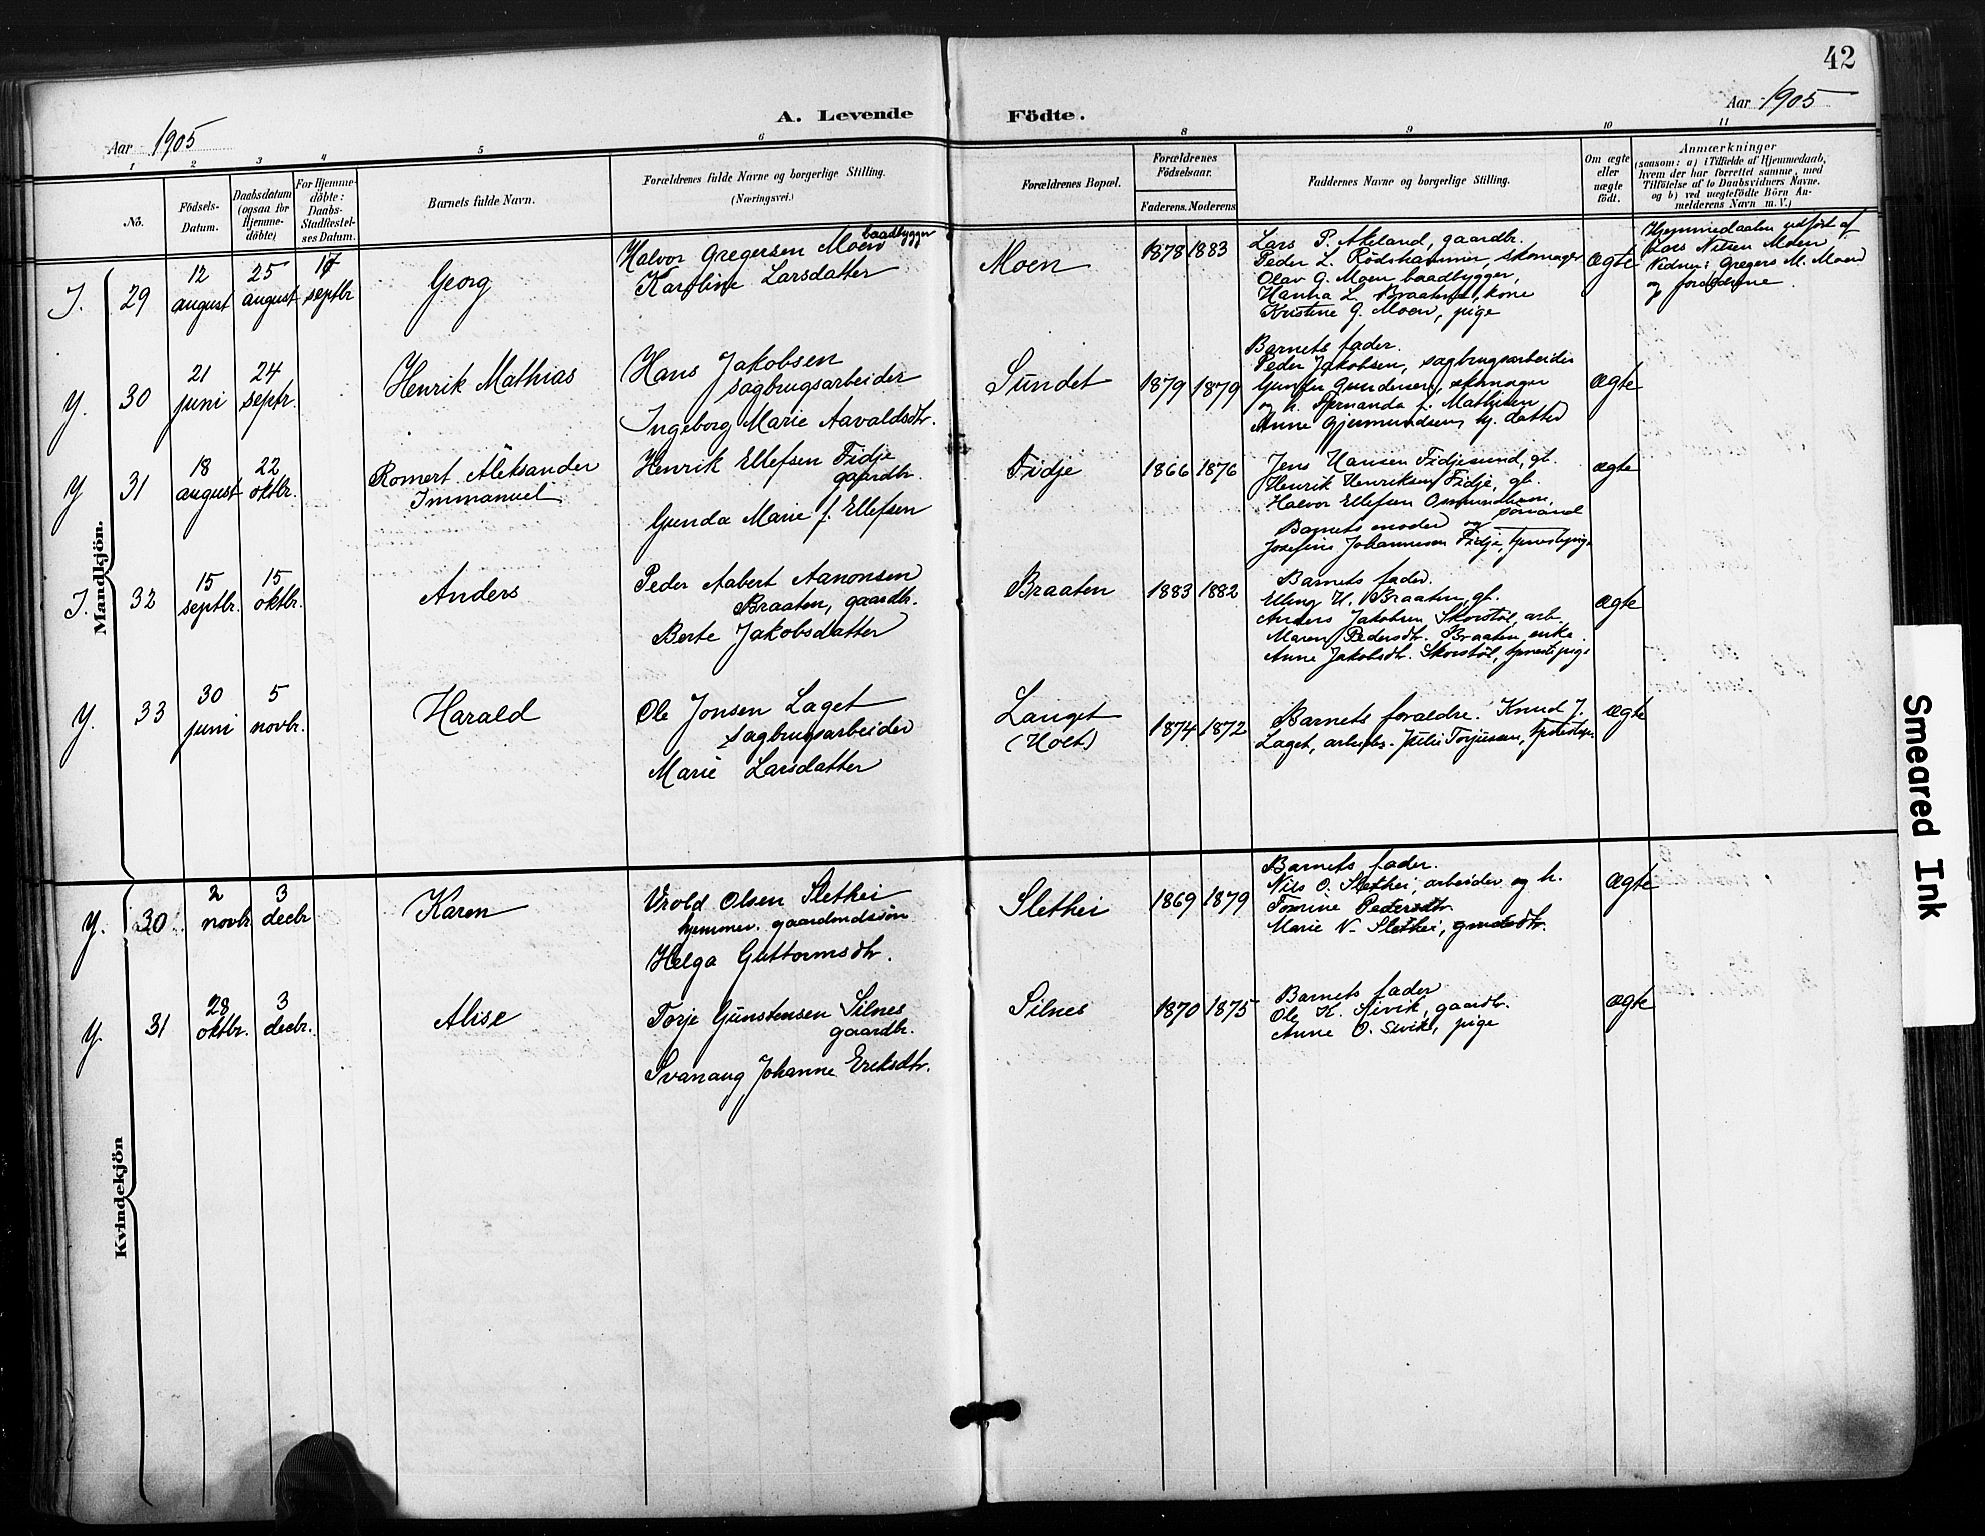 42
Aar 1905
A. Levende
Födte.
Aar 1905
1 2 3 4 5 6 8 9 10 11
Nô.
Födsels-
Datum.
Daabsdatum
(ogsaa for
Hjemme-
döbte)
For Hjemme-
döbte:
Daabs-
Stadfæstel-
ses Datum.
Barnets fulde Navn.
Forældrenes fulde Navne og borgerlige Stilling.
(Næringsvei.)
Forældrenes Bopæl.
Forældrenes
Födselsaar.
Faderens. Moderens
Faddernes Navne og borgerlige Stilling.
Om ægte
eller
uægte
födt.
Anmærkninger
(saasom: a) i Tilfælde af Hjemmedaab,
hvem der har forrettet samme, med
Tilföielse af to Daabsvidners Navne.
og b) ved uægtefödte Börn An-
melderens Navn m. V.)
Mandkjön.
J. 29
12
august
25
august
17
septbr
Georg
Halvor Gregersen Moen baadbygger
Karoline Larsdatter
Moen
1878 1883
Lars P. Akeland, gaardbr.
Peder L. Rödshammer, skomager
Olav G. Moen, baadbygger,
Hanna L. Braaten, kone
Kristine G. Moen, pige
ægte
Hjemmedaaben udført af
Lars Nilsen Moen
Vidner: Gregers M. Moen
og forældrene.
Y. 30
21
juni
24
septr.
Henrik Mathias
Hans Jakobsen
sagbrugsarbeider
Ingeborg Marie Aavaldsdtr.
Sundet
1879 1879
Barnets fader.
Peder Jakobsen, sagbrugsarbeider
Gundersen, skomager
og h. Fernanda f. Mathisen
Anne Gjermundsen, hj. datter
ægte
Y 31
18
august
22
oktbr.
Romert Aleksander
Immanuel
Henrik Ellefsen Fidje
gaardbr.
Gunda Marie f. Ellefsen
Fidje
1866 1876
Jens Hansen Fidjesund, gb.
Henrik Henriksen Fidje, gb.
Halvor Ellefsen Osmundhavn,
sömand
Barnets moder og
Josefine Johannesen Fidje, tjenestepige
ægte
J. 32
15
septbr.
15
oktbr.
Anders
Peder Aabert Aanonsen
Braaten, gaardbr.
Berte Jakobsdatter
Braaten
1883 1882
Barnets fader.
Elling H. Braaten, gb.
Anders Jakobsen Skorstöl, arb.
Maren Pedersdtr. Braaten, enke.
Anne Jakobsdtr. Skorstöl, tjenestepige
ægte
Y. 33
30
juni
5
novbr.
Harald
Ole Jonsen Laget
sagbrugsarbeider
Marie Larsdatter
Langet
(Holt)
1874 1872
Barnets forældre. Knud J.
Laget, arbeider. Julie Torjussen, tjenestepi.
ægte
Kvindekjön
Y. 30
2
novbr
3
decbr
Karen
Vrold Olsen Slethei
hjemmev. gaardmdssön
Helga Guttormsdtr.
Slethei
1869 1879
Barnets fader.
Nils O. Slethei, arbeider og h.
Tomine Pedersdtr
Marie N. Slethei, gmdsdtr.
ægte
Y. 31
28
oktbr.
3
decbr.
Alise
Torje Gunstensen Silnes
gaardbr.
Svanaug Johanne Eriksdtr.
Silnes
1870 1875
Barnets fader
Ole K. Sivik, gaardbr.
Anne O. Sivik, pige
ægte
Smeared Ink